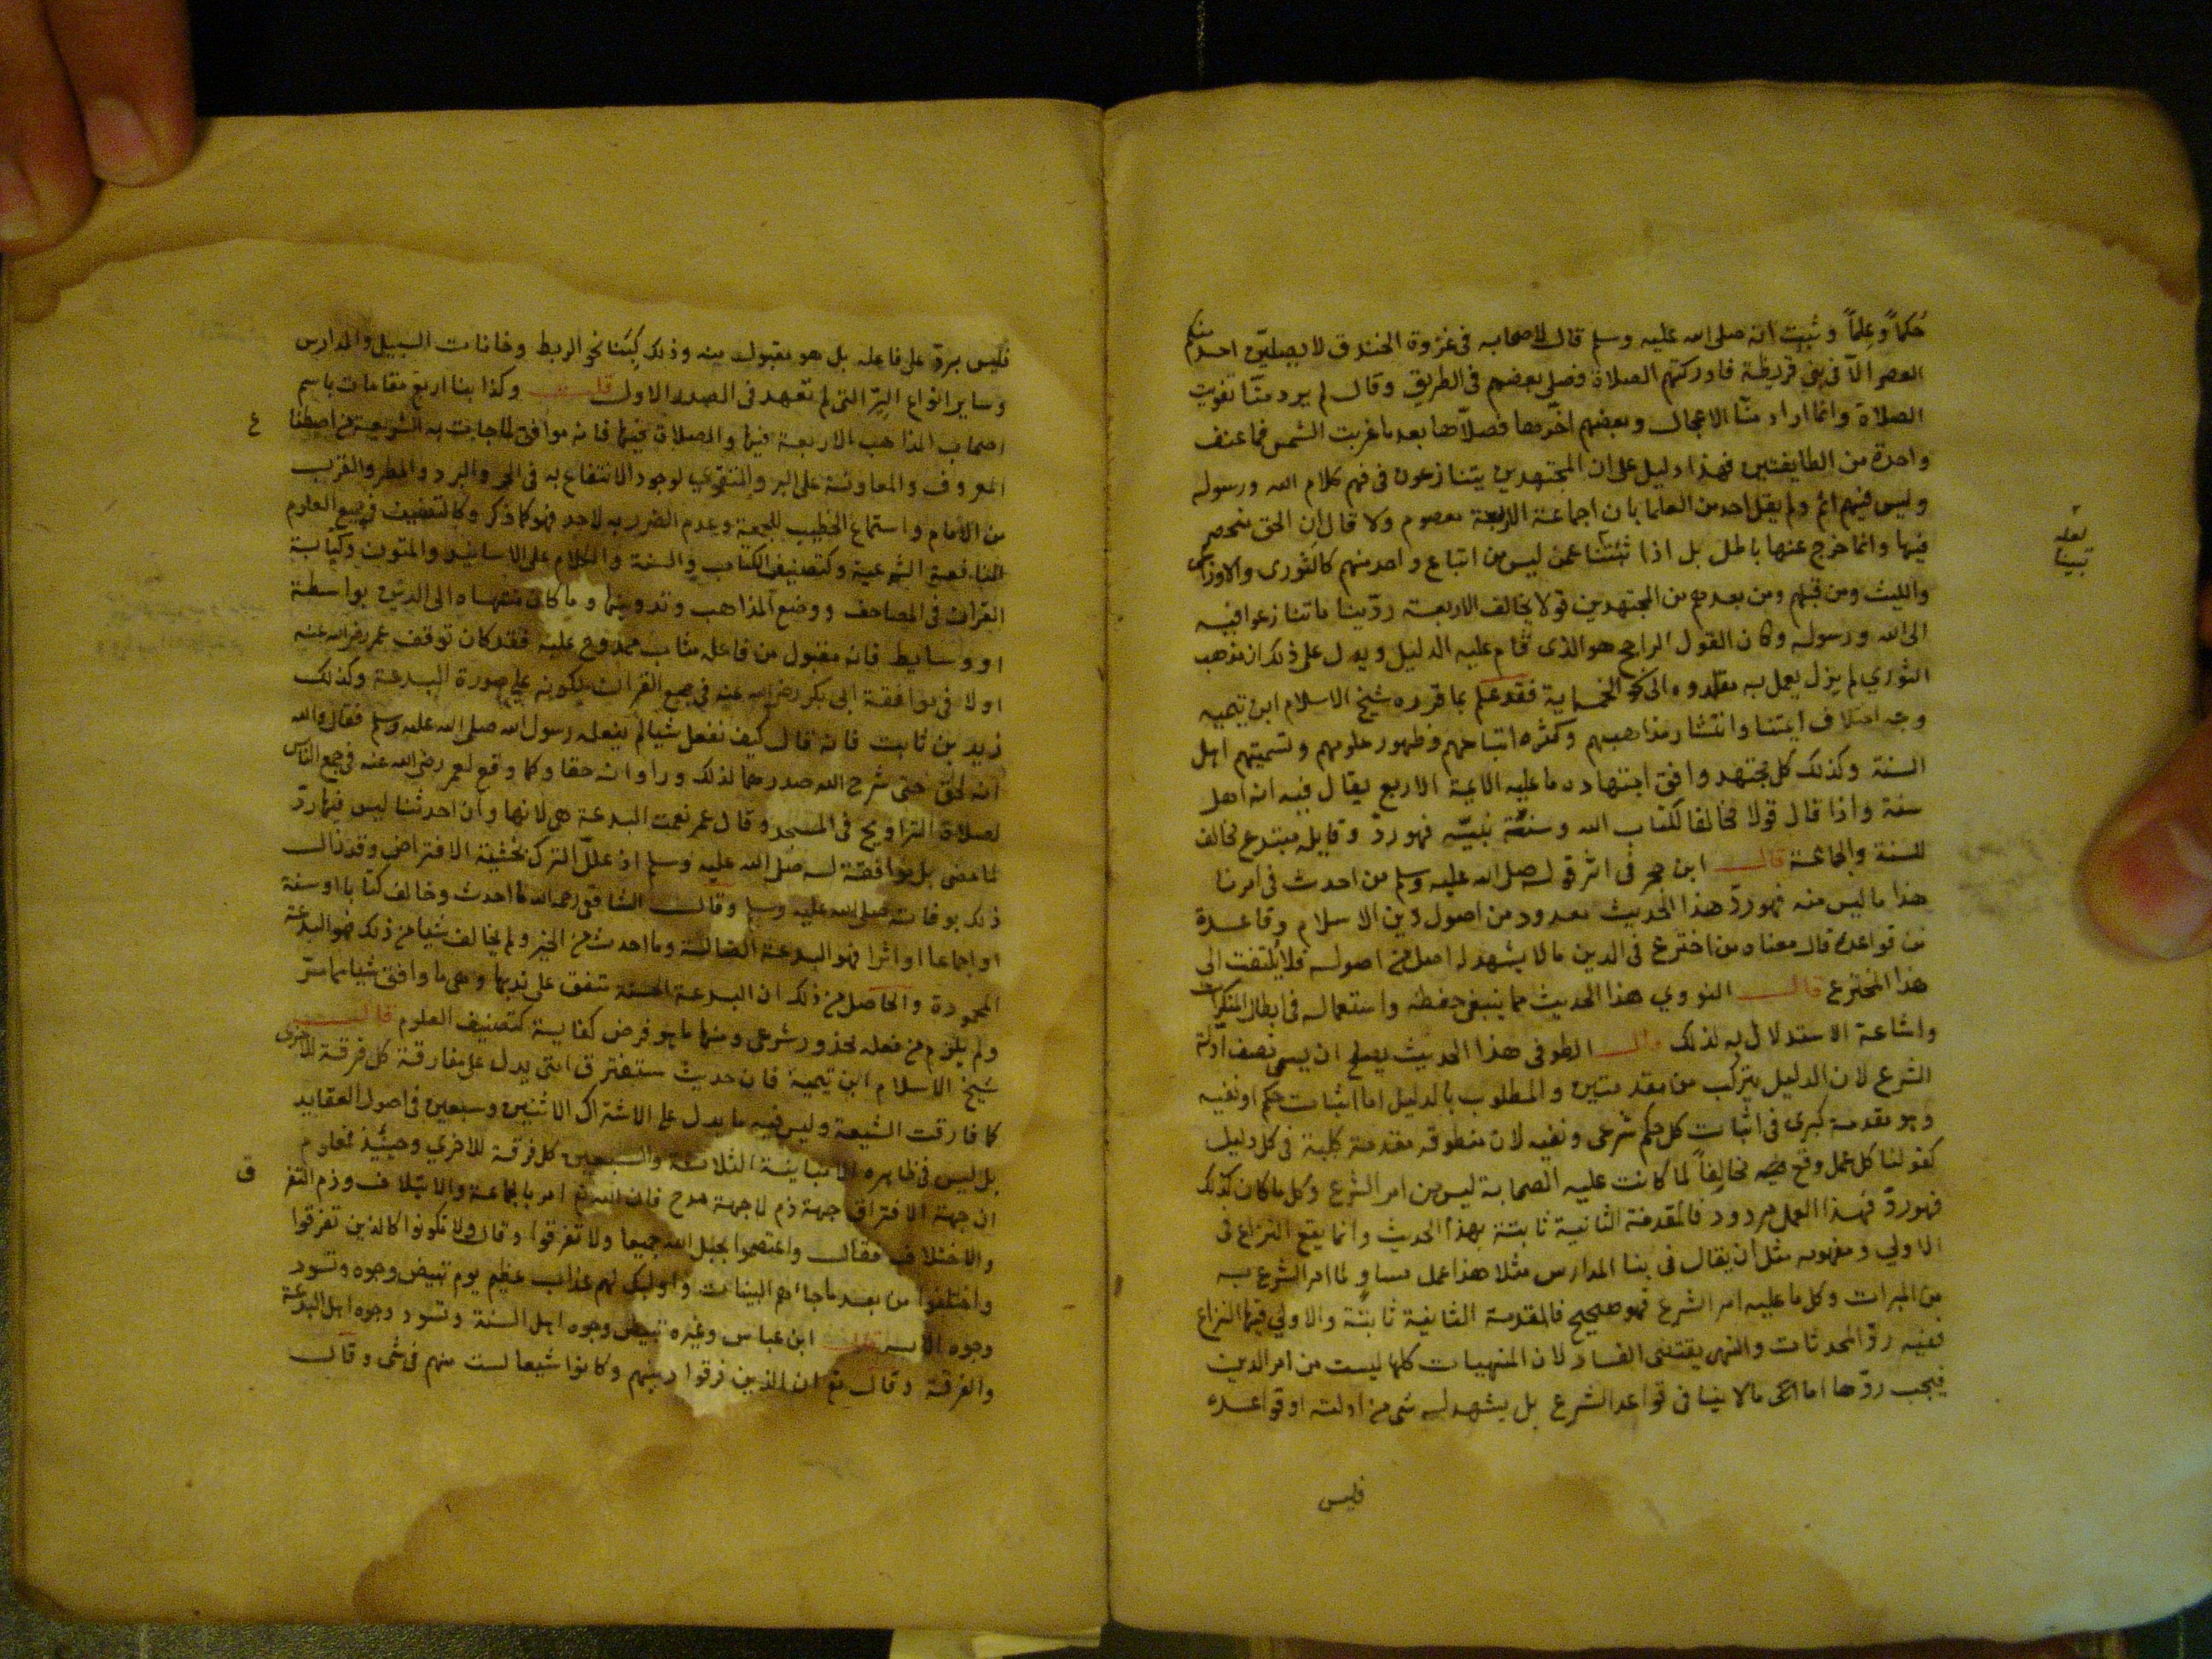 حُكماً وعِلماً وثبت انه صلى الله عليه وسلم قال لاصحابه فى غزوة الخندق لا يصلين احد منكم
العصر الّا فى بنى قريظة فادركتهم الصلاة فصلى بعضهم فى الطريق وقال لم يرد منّا تفويت
الصلاة وانما اراد منّا الاعجال وبعضهم اخّرها فصلّاها بعد ما غربت الشمس فما عنف
واحدة من الطايفتين فهذا دليل على ان المجتهدين يتنازعون فى فهم كلام الله ورسوله
وليس فيهم اثم ولم يقل احد من العلما بان اجماعة الاربعة معصوم ولا قال ان الحق منحصر
فيها وانما خرج عنها باطل بل اذا عمن ليس من اتباع واحد منهم كالثورى والاوزاعى
والليث ومن قبلهم ومن بعدهم من المجتهدين قولا يخالف الاربعة ردّينا ما تنازعوا فيه
الى الله ورسوله وكان القول الراجح هو الذى قام عليه الدليل ويدل على ذلك ان مذهب
الثوري لم يزل يعمل به مقلدوه الى الخمسماية فقد علم بما قرره شيخ الاسلام ابن تيميه
وجه اختلاف ايمتنا وانتشار مذاهبهم وكثره اتباعهم وظهور علومهم وتسميتهم اهل
السنة وكذلك كل مجتهد وافق اجتهاده ما عليه الايمة الاربع يقال فيه انه اهل
سنة واذا قال قولا مخالفا لكتاب الله وسنّة نبيّه فهو ردّ وقايله مبتدع مخالف
للسنة والجماعة قال ابن حجر فى اثر قوله صلى الله عليه وسلم من احدث فى امرنا
هذا ما ليس منه فهو ردّ هذا الحديث معدود من اصول دين الاسلام وقاعدة
من قواعده قال معناه من اخترع فى الدين ما لا يشهد له اصل من اصوله فلا يلتفت الى
هذا المخترع قال النووي هذا الحديث مما ينبغى حفظه واستعماله فى ابطال المنكرات
واشاعة الاستدلال به لذلك قال الطوفى هذا الحديث يصلح ان يسمى نصف ادلة
الشرع لان الدليل يتركب من مقدمتين والمطلوب بالدليل اما اثبات حكم او نفيه
وهو مقدمة كبرى فى اثبات كل حكم شرعى ونفيه لان منطوقه مقدمة كلية فى كل دليل
كقولنا كل عمل وقع مخالفاً لما كانت عليه الصحابة ليس من امر الشرع وكل ما كان كذلك
فهو ردّ فهذا العمل مردود فالمقدمة الثانية ثابتة بهذا الحديث وانما يقع النزاع فى
الاولي ومفهومه مثل ان يقال فى بنا المدارس مثلا هذا عمل مساوٍ لما امر الشرع به
من المبرات وكل ما عليه امر الشرع فهو صحيح فالمقدمة الثانية ثابتة والاولي فيها النزاع
ففيه ردّ المحدثات والنهى يقتضى الفساد لان المنهيات كلها ليست من امر الدين
فيجب ردّها اما ما لا ينافى قواعد الشرع بل يشهد له شى من ادلته او قواعده
فليس
لعله
تبينا
فليس بردّ على فاعله بل هو مقبول منه وذلك كبنا نحو الربط وخانات السبيل والمدارس
وساير انواع البِرّ التى لم تعهد فى الصدر الاول قلت وكذا بنا اربع مقامات باسم
اصحاب المذاهب الاربعة فيها والصلاة فيها فانه موافق لما جات به الشريعة من اصطناع
المعروف والمعاونة على البر والتقوي لوجود الانتفاع به فى الحر والبرد والمطر والقرب
من الامام واستماع الخطيب للجمعة وعدم الضرر به لاحد فهو كما ذكر وكالتصنيف فى جميع العلوم
النافعة الشرعية وكتصنيف الكتاب والسنة والكلام على الاسانيد والمتون وكتابة
القران فى المصاحف ووضع المذاهب وتدوينها وما كان منتهاه الى الدين بواسطة
او وسايط فانه مقبول من فاعله مثاب ممدوح عليه فقد كان توقف عمر رضى الله عنه
اولا فى موافقة ابى بكر رضى الله عنه فى جمع القران لكونه على صورة البدعة وكذلك
زيد بن ثابت فانه قال كيف نفعل شيا لم يفعله رسول الله صلى الله عليه وسلم فقال والله
انه لحق حتى شرح الله صدرهما لذلك وراوا انه حقا وكما وقع لعمر رضى الله عنه فى جمع الناس
لصلاة التراويح فى المسجد وقال عمر نعمت البدعة هى لانها وان احدثنا ليس فيها ردّ
لما مضى بل موافقة له صلى الله عليه وسلم اذ علل الترك بخشية الافتراض وقد زال
ذلك بوفاته صلى الله عليه وسلم وقال الشافعى رحمه الله ما احدث وخالف كتابا او سنة
او اجماعا او اثرا فهو البدعة الضالة وما احدث من الخير ولم يخالف شيا من ذلك فهو البدعة
المحمودة والحاصل من ذلك ان البدعة الحسنة متفق على ندبها وهى ما وافق شيا مما مرّ
ولم يلزم من فعله محذور شرعى ومنها ما هو فرض كفاية كتصنيف العلوم قال
شيخ الاسلام ابن تيمية فان حديث ستفترق امتى يدل على مفارقة كل فرقة للاخرى
كما فارقت الشيعة وليس فيه ما يدل على الاشتراك الاثنين وسبعين فى اصول العقايد
بل ليس فى ظاهره الا مباينة الثلاثة والسبعين كل فرقة للاخري وحينئذ فمعلوم
ان جهة الافتراق جهة ذم لا جهة مدح فان الله تع امر بالجماعة والايتلاف وذم التفر ق
والاختلاف فقال واعتصموا بحبل الله جميعا ولا تفرقوا وقال ولا تكونوا كالذين تفرقوا
واختلفوا من بعد ما جاهم البينات واوليك لهم عذاب عظيم يوم تبيض وجوه وتسود
وجوه قال ابن عباس وغيره تبيض وجوه اهل السنة وتسود وجوه اهل البدعة
والفرقة وقال تع ان الذين فرقوا دينهم وكانوا شيعا لست منهم فى شى وقال